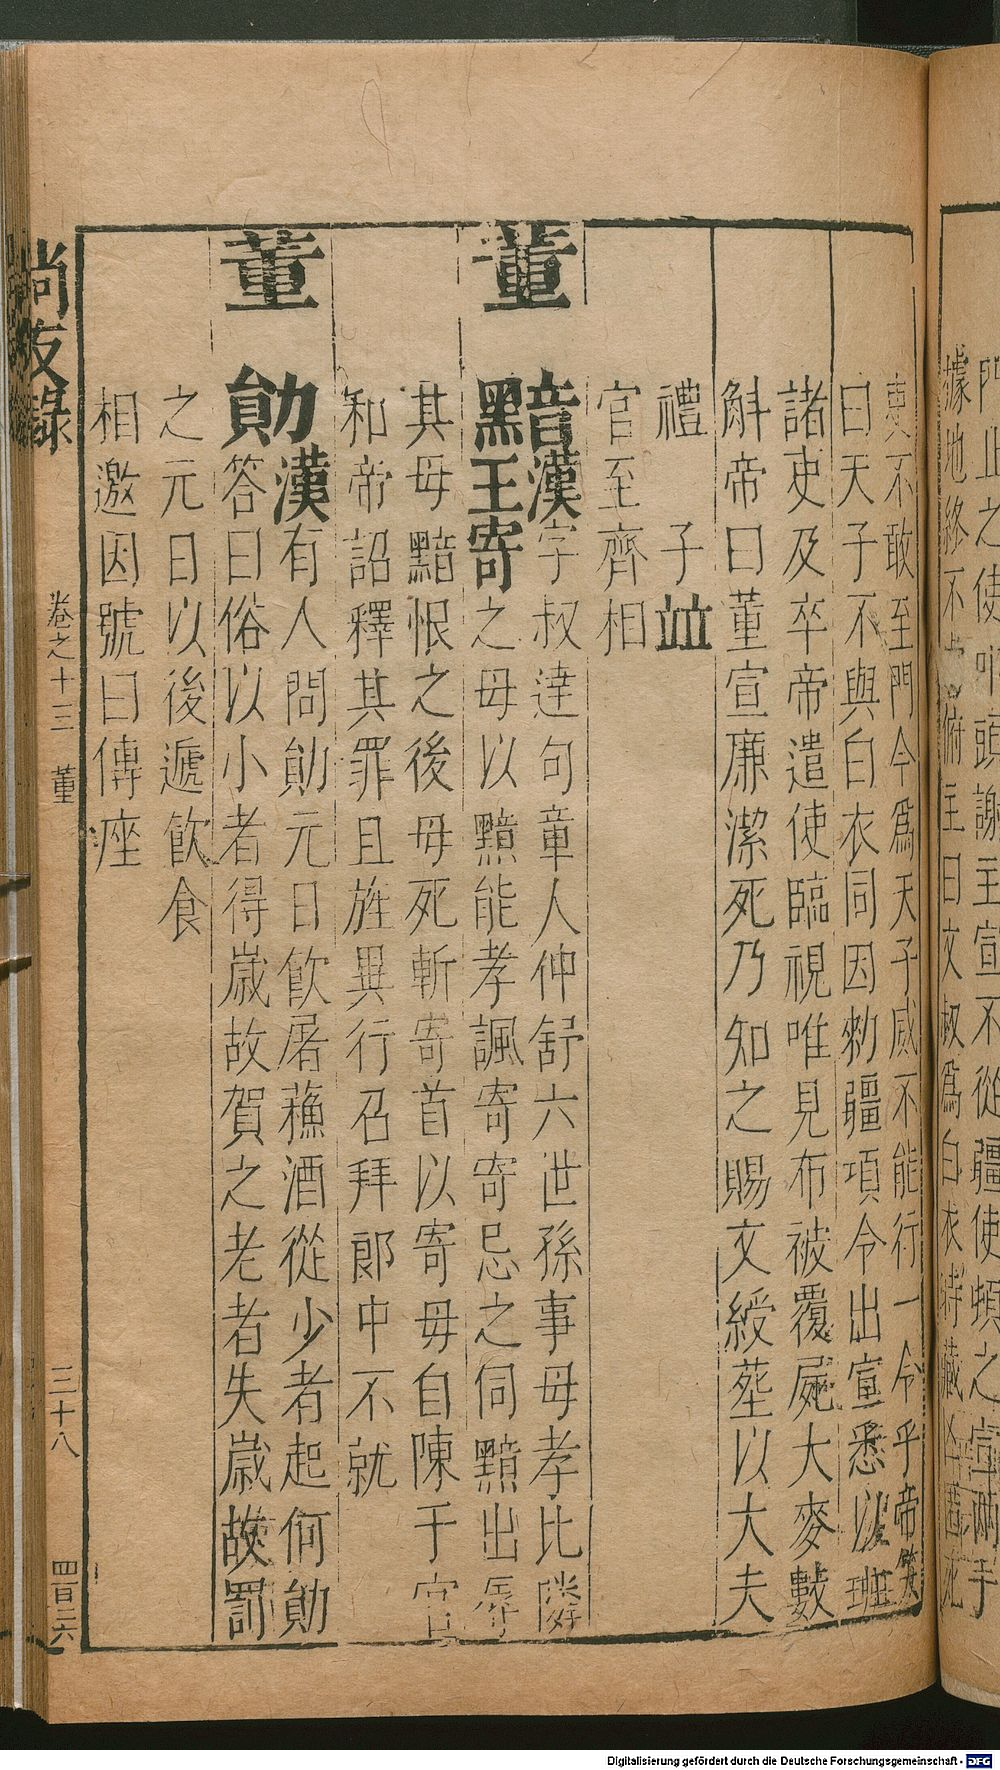 門止之使叩頭謝主宣不從疆使頓之宣兩手
據地終不俯主曰文叔爲白衣時藏亡匿死
吏不敢至門今爲天子威不能行一令乎帝笑
曰天子不與白衣同因勑疆項令出宣悉以班
諸吏及卒帝遣使臨視唯見布被覆屍大麥數
斛帝曰董宣廉潔死乃知之賜艾綬塟以大夫
禮 子並
官至齊相
董黯漢字叔達句章人仲舒六世孫事母孝比隣
王寄之母以黯能孝諷寄寄忌之伺黯出辱
其母黯恨之後母死斬寄首以寄母自陳于官
和帝詔釋其罪且旌異行召拜郎中不就
董勛漢有人問勛元日飲屠蘓酒從少者起何勛
答曰俗以小者得歲故賀之老者失歲故罰
之元日以後遞飲食
相邀因號曰傳座
尚友錄 卷之十三 董 三十八 四百二六
Digitalisierung gefördert durch die Deutsche Forschungsgemeinschaft - DFG